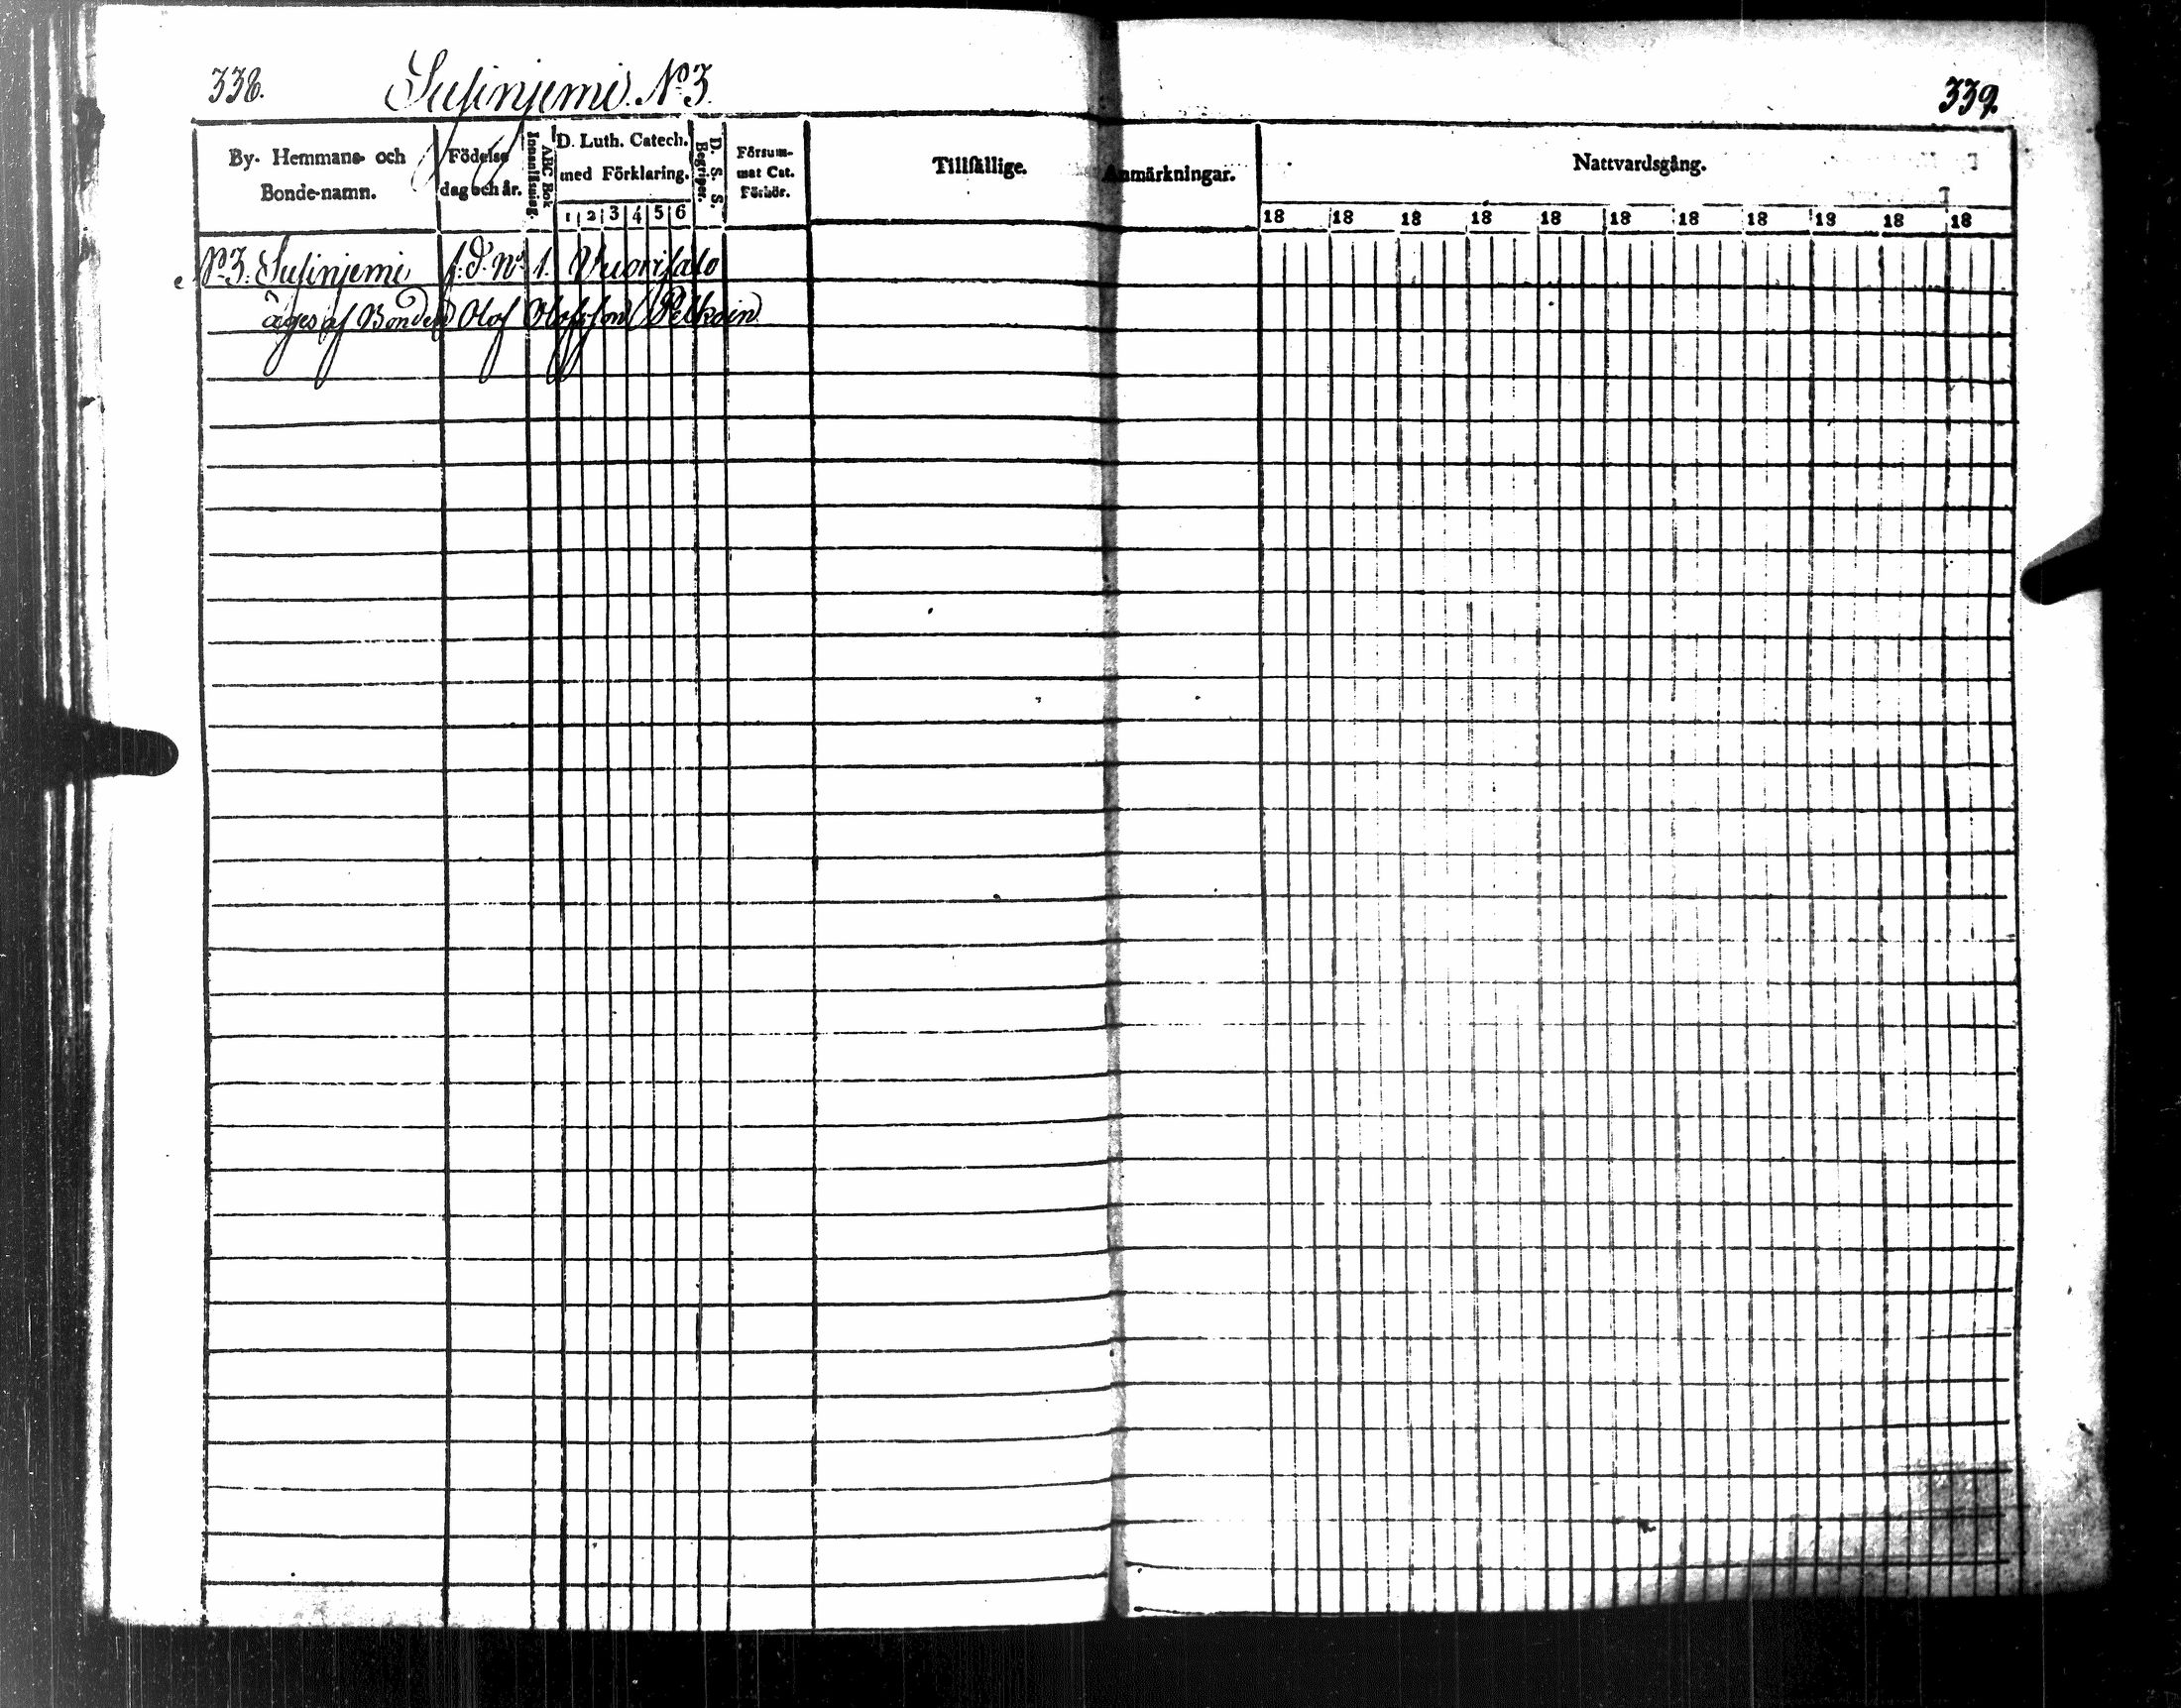 338.
Susinjemi. No 3.
339.
By- Hemmans- och Bonde-namn.
Födelse dag och år.
ABC Bok Innanläsning.
D. Luth. Catech. med Förklaring.
1 2 3 4 5 6
D. S. S. Begriper.
Försum-
mat Cat.
Förhör.
Tillfällige. Anmärkningar.
Nattvardsgång.
18 18 18 18 18 18 18 18 18 18 18
No 3. Susinjemi f. d. No 1. Vuorisalo
äges af Bonden Olof Olofsson Pelkoin.